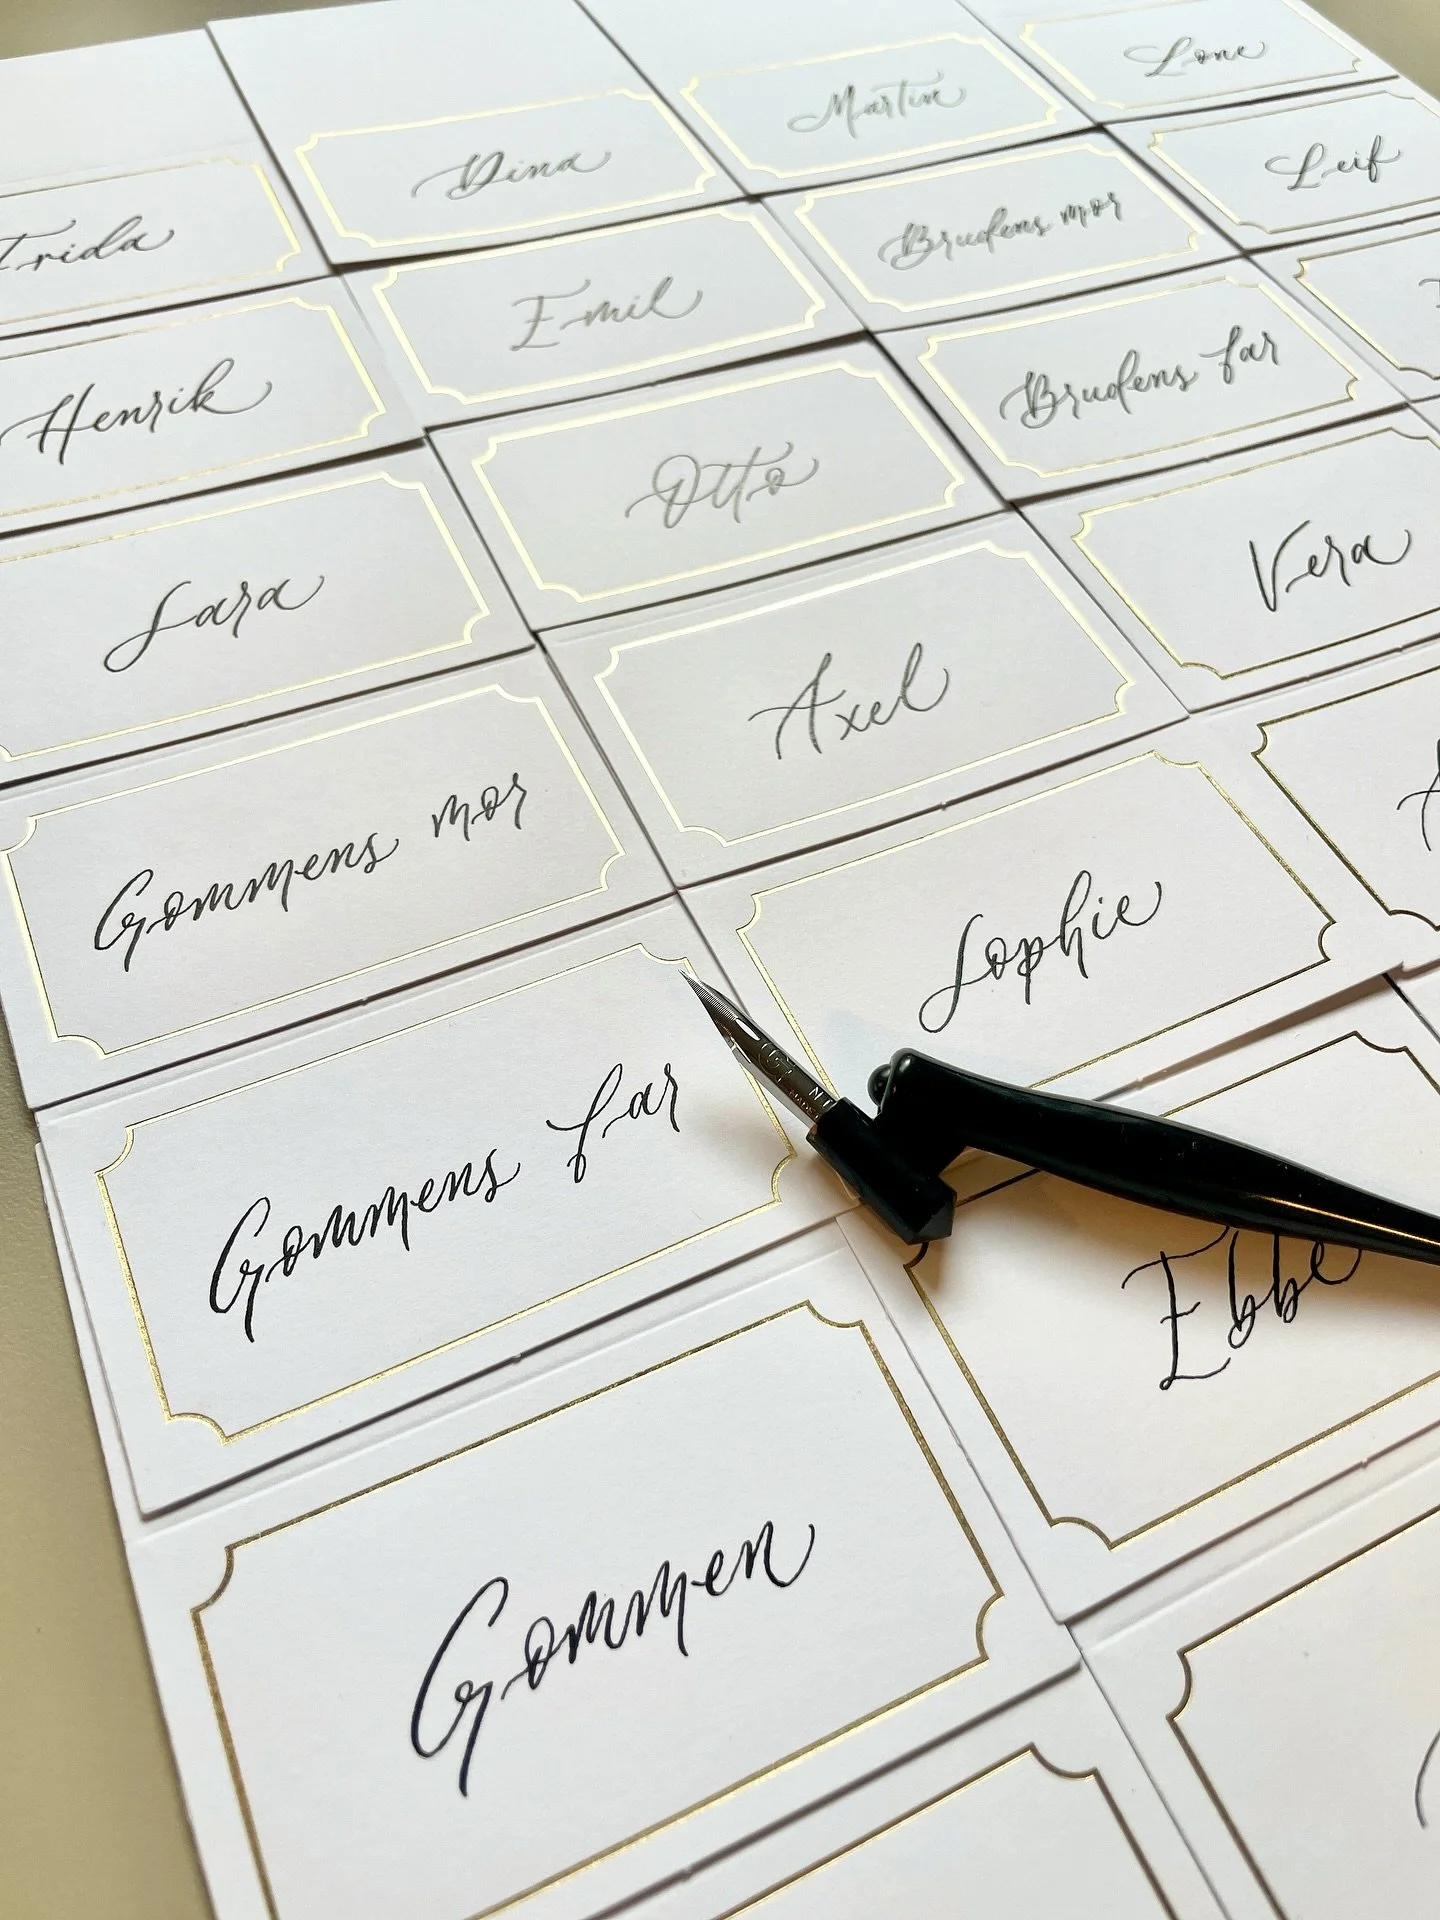 Frida
Henrik
Sara
Gommens mor
Gommens far
Gommen
Dina
Emil
Otto
Axel
Sophie
Ebbe
Martin
Brudens mor
Brudens far
Vera
Lone
Leif